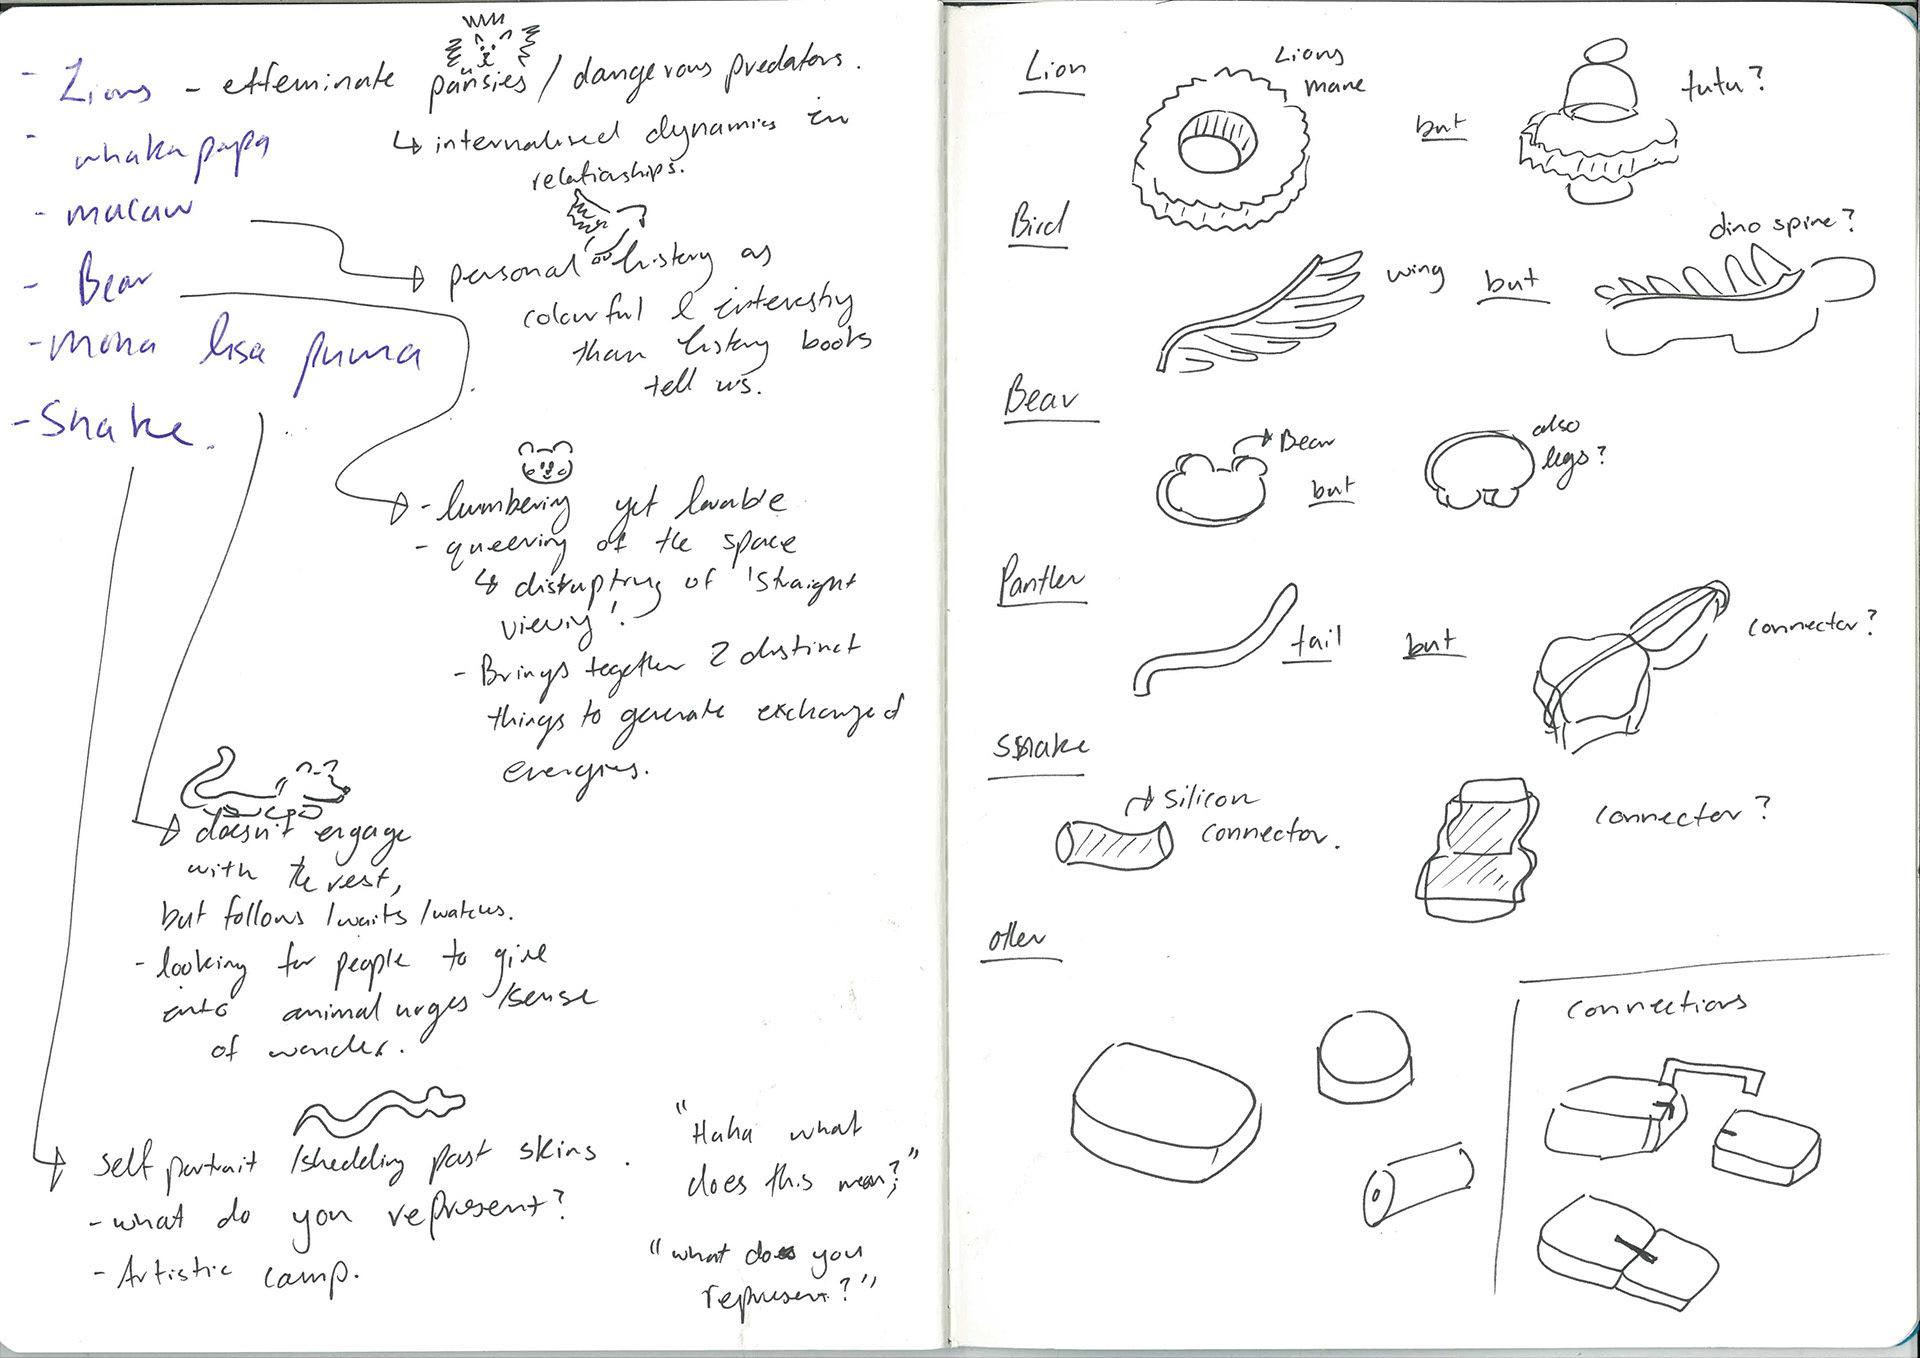 - Lions - effeminate pansies / dangerous predators.
↳ internalised dynamics in
relationships.
- whakapapa
- macaw
personal history as
colourful & interesting
than history books
tell us.
- Bear
- lumbering yet lovable
- queering of the space
↳ disrupting of 'straight
viewing'.
- Brings together 2 distinct
things to generate exchange of
energies.
- mona lisa puma
doesn't engage
with the rest,
but follows /waits /watches.
- looking for people to give
into animal urges /sense
of wonder.
- Snake.
self portrait /shedding past skins.
- what do you represent?
- Artistic camp.
"Haha what
does this mean?"
"what does you
represent?"
Lion
Lions
mane
but
tutu?
Bird
wing
but
dino spine?
Bear
Bear
but
also
legs?
Panther
tail
but
connector?
Snake
Silicon
connector.
connector?
other
connections